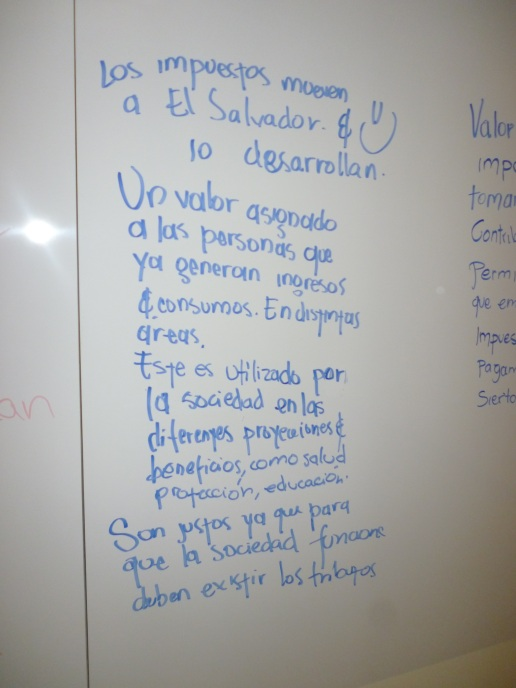 Los impuestos mueven
a El Salvador. &
lo desarrollan.
Un valor asignado
a las personas que
ya generan ingresos
& consumos. En distintas
areas.
Este es utilizado por
la sociedad en las
diferentes proyecciones &
beneficios, como salud
protección, educación.
Son justos ya que para
que la sociedad funcione
deben existir los tributos
an
Valor
impo
tomar
Contrib
Permi
que em
Impues
Pagan
Sierto